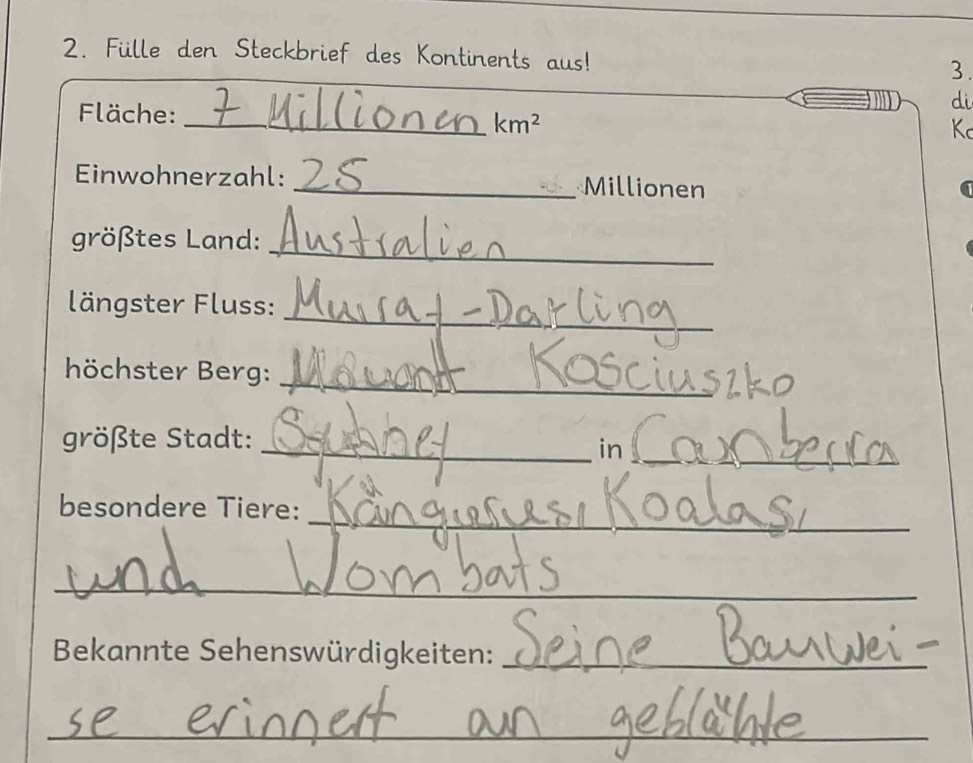 2. Fülle den Steckbrief des Kontinents aus!
3.
di
Fläche: 7 Millionen km²
Einwohnerzahl: 25 Millionen
größtes Land: Australien
längster Fluss: Murray-Darling
höchster Berg: Mount Kosciuszko
größte Stadt: Sydney in Canberra
besondere Tiere: Kängurus, Koalas,
und Wombats
Bekannte Sehenswürdigkeiten: Seine Bauwei-
se erinnert an geblähte